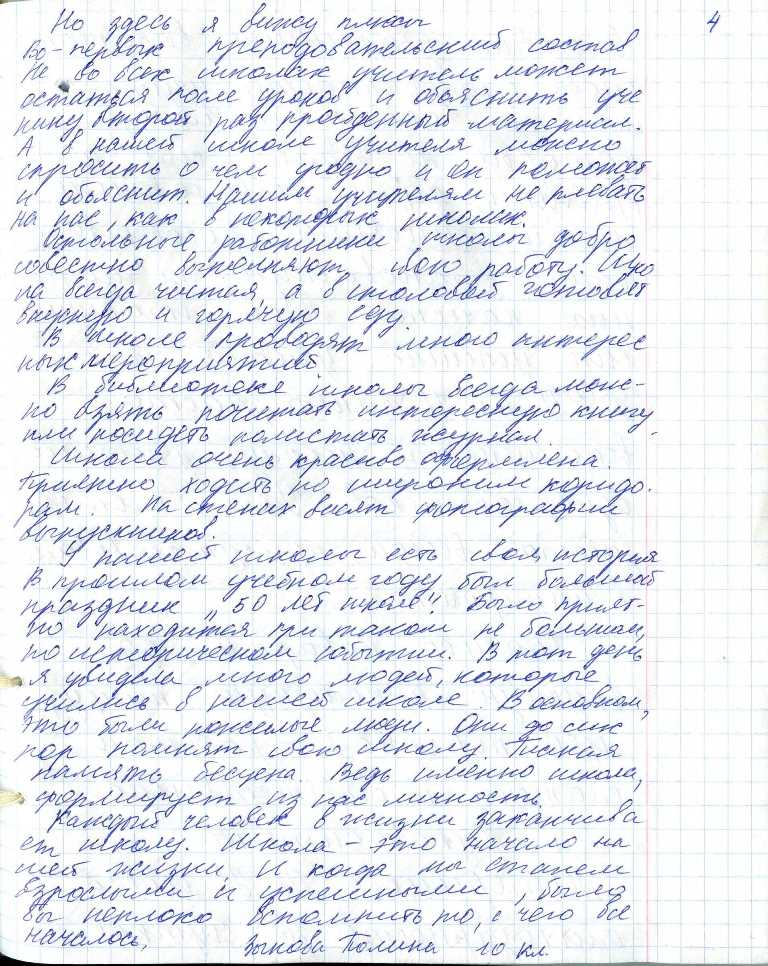 Но здесь я вижу плюсы
4
Во-первых преподовательский состав
Не во всех школах учитель может
остаться после уроков и объяснить уче
нику второй раз пройденный материал.
А в нашей школе учителя можно
спросить о чем угодно и он поможет
и объяснит. Нашим учителям не плевать
на нас, как в некоторых школах.
Остальные работники школы добро
совестно выполняют свою работу. Шко
ла всегда чистая, а в столовой готовят
вкусную и горячую еду.
В школе проводят много интерес
ных мероприятий.
В библиотеке школы всегда мож-
но взять почитать интересную книгу
или посидеть полистать журнал.
Школа очень красиво оформлена.
Приятно ходить по широким коридо.
рам. На стенах висят фотографии
выпускников.
У нашей школы есть своя история
В прошлом учебном году был большой
праздник „50 лет школе". Было прият-
но находится при таком не большом,
но историческом событии. В тот день
я увидела много людей, которые
учились в нашей школе. В основном,
это были пожелые люди. Они до сих
пор помнят свою школу. Такая
память бесцена. Ведь именно школа,
формирует из нас личность.
Каждый человек в жизни заканчива
ет школу. Школа – это начало на
шей жизни. И когда мы станем
взрослыми и успешными, было
бы неплохо вспомнить то, с чего все
началось.
Зыкова Полина 10 кл.